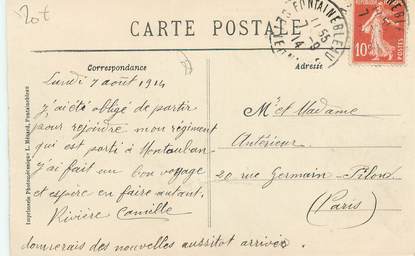 20t
CARTE POSTALE
Correspondance
Adresse
Lundi 7 août 1914
j'ai été obligé de partir
pour rejoindre mon régiment
qui est parti à Montauban
j'ai fait un bon voyage
et espère en faire autant.
Rivière Camille
donnerais des nouvelles aussitot arrivée.
Mr et Madame
Antérieur
20 rue Germain-Pilon
(Paris)
FONTAINEBLEAU
10c
Imprimerie Photographique L. Ménard, Fontainebleau